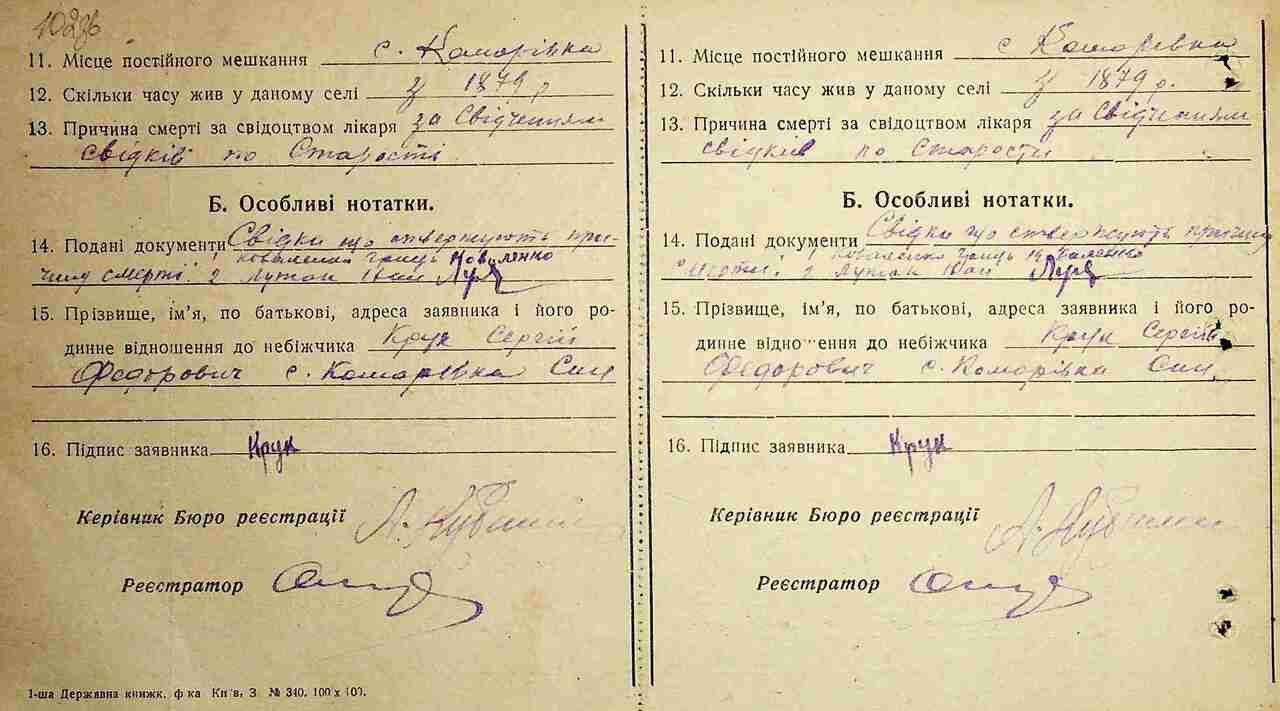 102зв
11. Місце постійного мешкання с. Комарівка
12. Скільки часу жив у даному селі з 1879 р
13. Причина смерті за свідоцтвом лікаря за Свідченням
свідків по Старості
Б. Особливі нотатки.
14. Подані документи Свідки що ствержують при-
чину смерті: Коваленко Гриць Коваленко
2 Лутак Іван
15. Прізвище, ім'я, по батькові, адреса заявника і його ро-
динне відношення до небіжчика Крук Сергій
Федорович с. Комарівка Син
16. Підпис заявника Крук
Керівник Бюро реєстрації
Реєстратор
1-ша Державна книжк. ф-ка Київ, З. № 340. 100 x 100.
11. Місце постійного мешкання с Комаревка
12. Скільки часу жив у даному селі з 1879 р.
13. Причина смерті за свідоцтвом лікаря за Свідченням
свідків по Старости
Б. Особливі нотатки.
14. Подані документи Свідки що ствержують причину
смерти: Коваленко Гриць Коваленко
2 Лутак Іван
15. Прізвище, ім'я, по батькові, адреса заявника і його ро-
динне відношення до небіжчика Крук Сергій
Федорович с. Комарівка Син
16. Підпис заявника Крук
Керівник Бюро реєстрації
Реєстратор